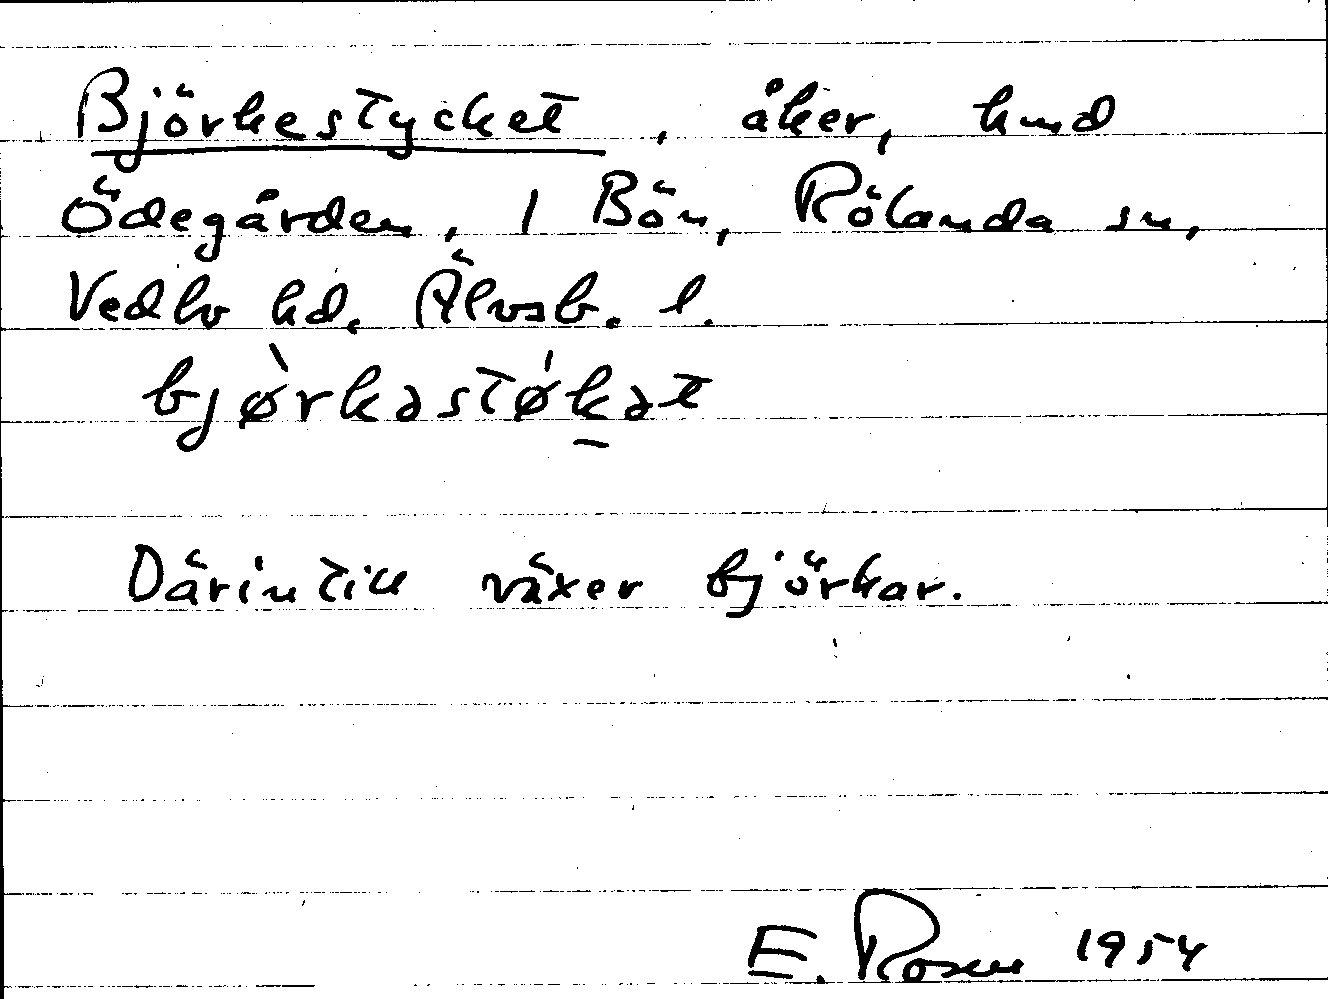 Björkestycket, åker, hmd
Ödegården, 1 Bön, Rölanda sn,
Vedbo hd. Älvsb. l.
bjø̀rkəstǿk̲ət
Därintill växer björkar.
E. Rosen 1954